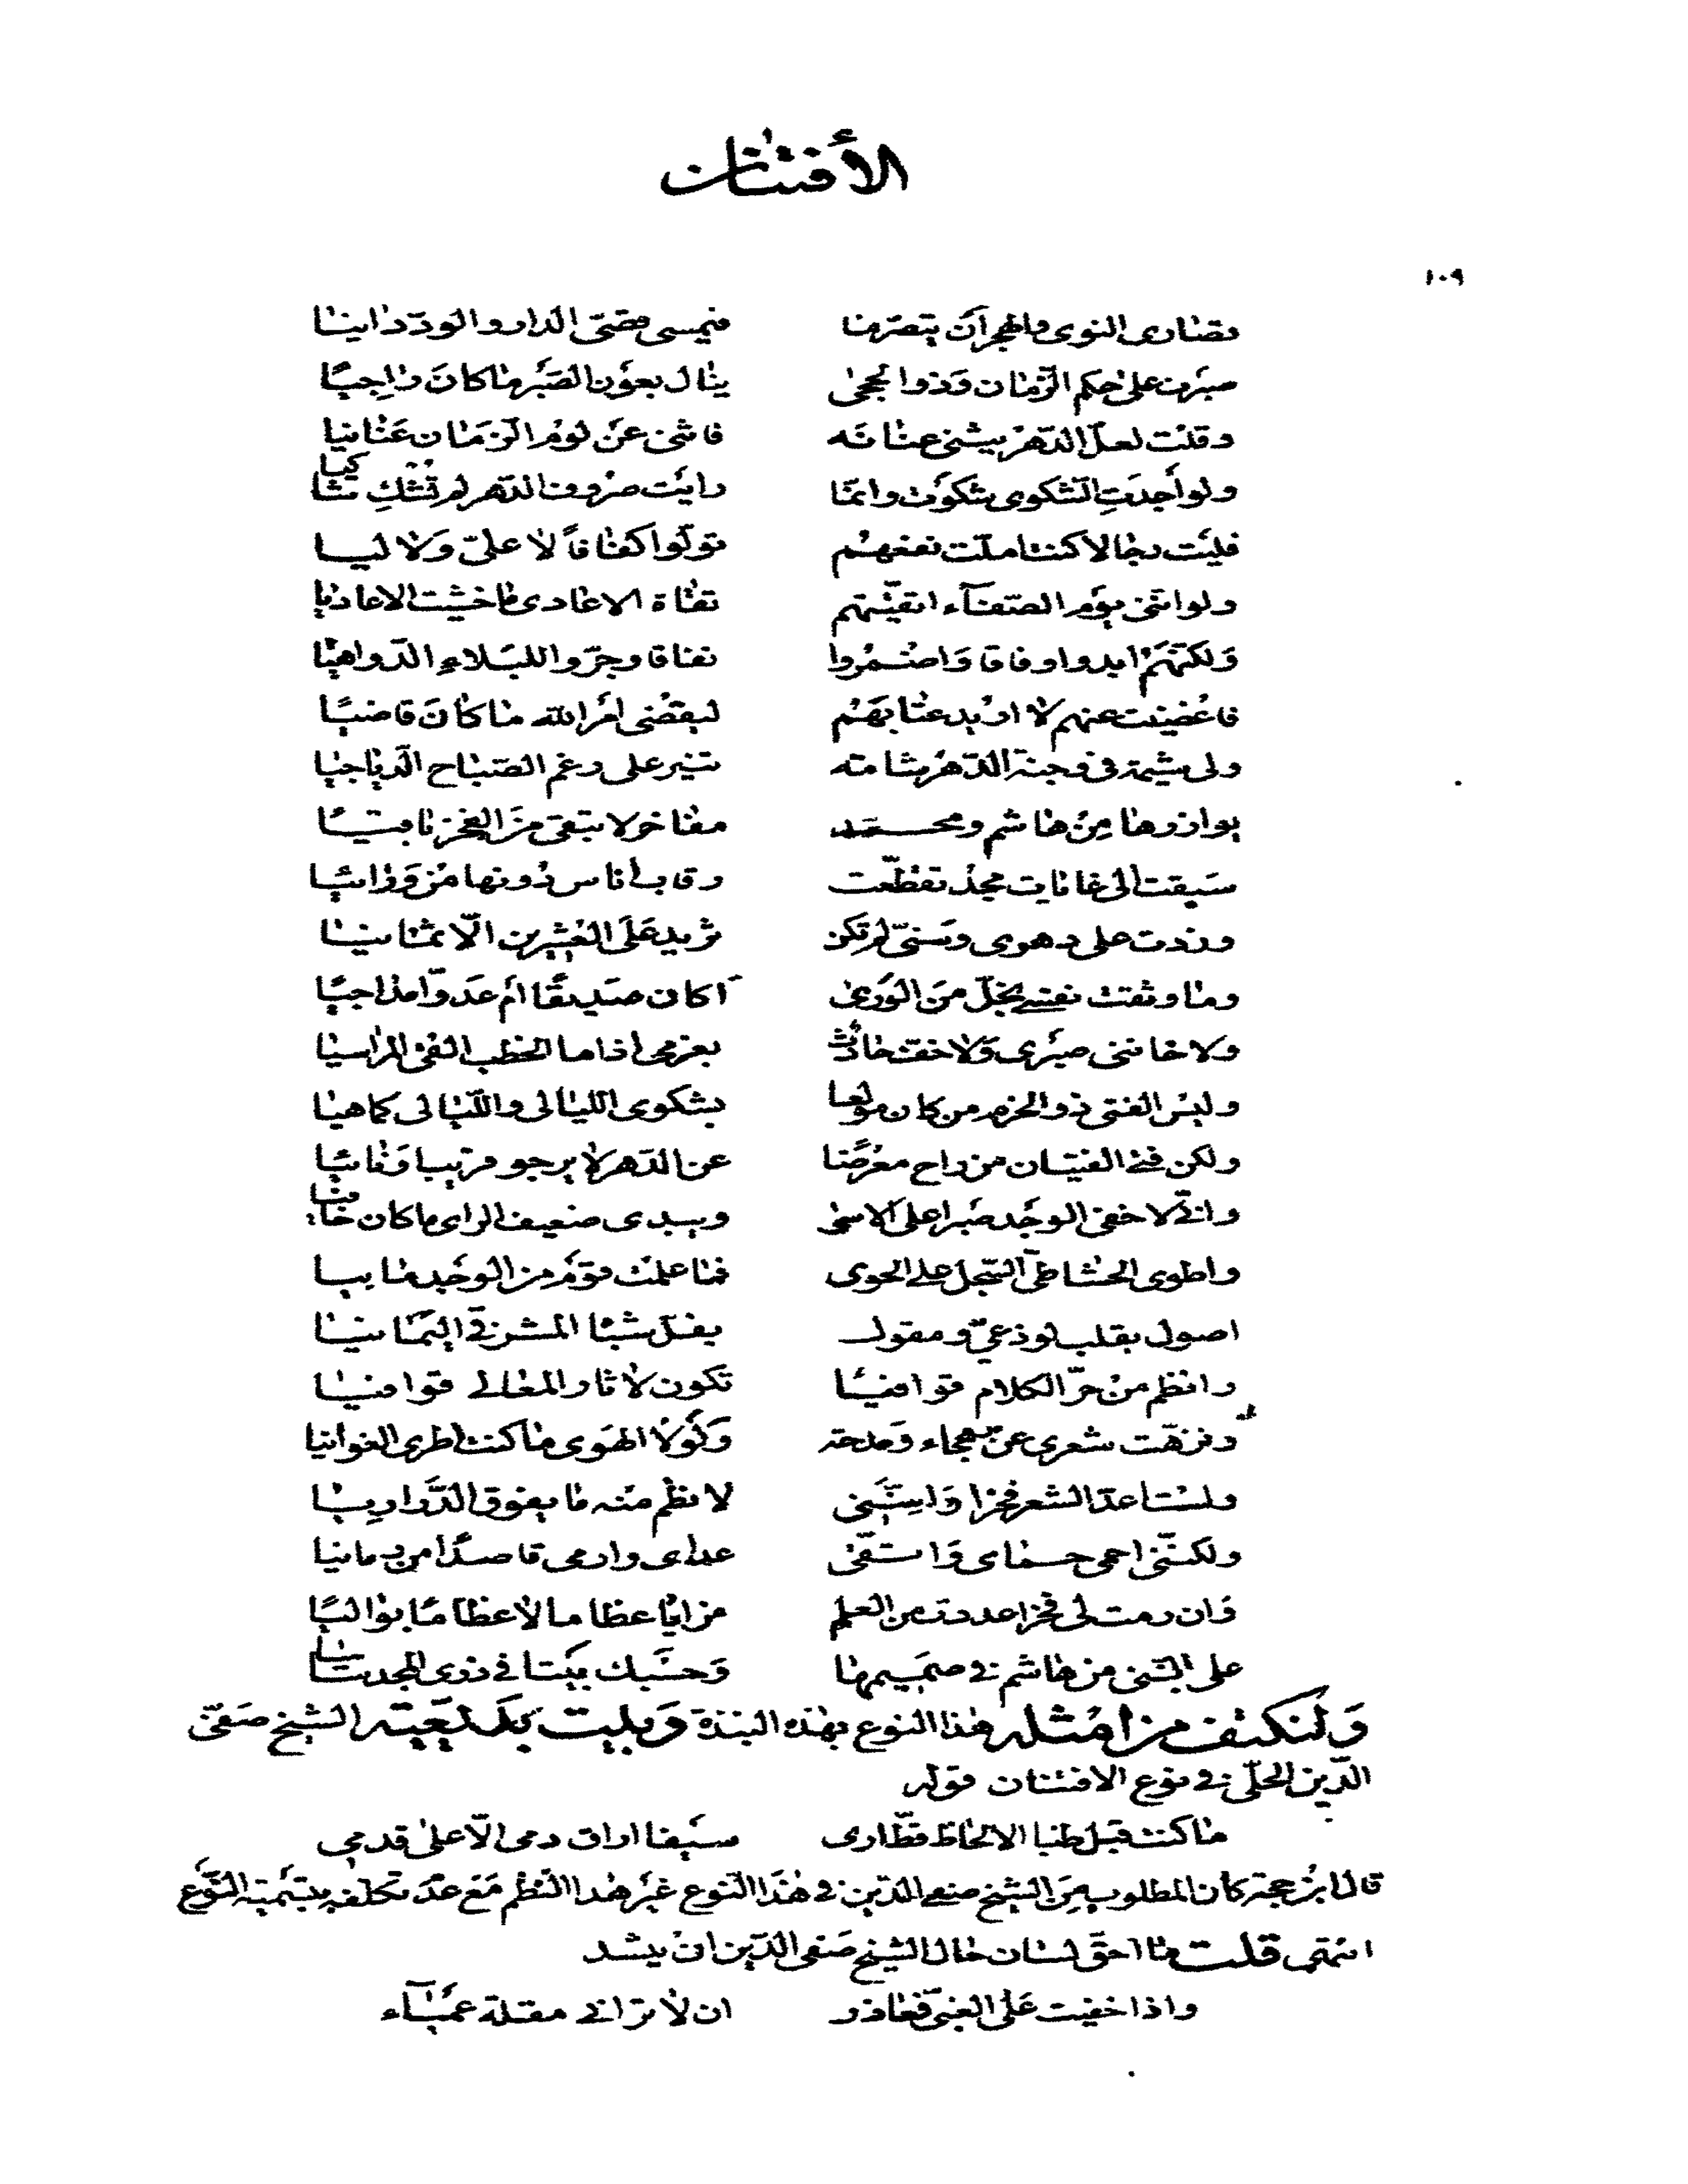 الأفتنان
١٠٩
قصارى النوى والهجر أن يتصرما فيمسى مقصىّ الدار والودّ دانيا
صبرت على حكم الزّمان وَذوا لحجى ينال بعون الصّبر ما كانَ راجيًا
وقلت لعلّ الدّهر يثنى عنانه فاثنى عن لوم الزمان عنانيا
ولو أجدَتِ الشكوى شكوت وانمّا رايت صروف الدّهر لم تشكِ شاكيا
فليت رجالا كنت املت نفعهم تولّوا كفافاً لا علىّ وَلا ليا
ولو انّنى يوم الصّفآء اتقيتهم تقاة الاعادى ما خشيت الاعاديا
وَلكنّهم ابدوا وفاقا وَاضمروا نفاقا وجرّوا للبلاء الدّواهيا
فاغضيت عنهم لا اريد عتابهم ليقضى امر الله ما كانَ قاضيًا
ولى شيمة فى وجنة الدّهر شامة تنير على رغم الصّباح الدّياجيا
يوازرها من هاشم ومحمد مفاخر لا تبقى من الفخر باقيًا
سبقت الى غايات مجد تقطّعت رقاب اناس دونها من ورائيا
وزدت على دهرى وسنىّ لم تكن تزيد على العشرين الّا ثمانيا
وما وثقت نفسى بخلّ من الورى اكان صديقًا ام عدوّا مداجيًا
ولا خاننى صبرى وَلا خفت حادث بعزمى اذا ما الخطب القى المراسيا
وليس الفتى ذو الحزم من كان مولعا بشكوى الليالى والليالى كماهيا
ولكن فتى الفتيان من راح معرضا عن الدّهر لا يرجو قريبا ونائيا
وانّى لاخفى الوجد صبرا على الاسى ويبدى ضعيف الراى ما كان خافيا
واطوى الحشا طىّ السّجل على الجوى فما علمت قوم من الوجد ما بيا
اصول بقلب لوذعىّ ومقول يفلّ شبا المشرفىّ اليمانيا
وانظم من حرّ الكلام قوافيا تكون لاثار المعالى قوافيا
ونزهّت شعرى عن هجاء ومدحة وَلَولا الهوى ما كنت اطرى الغوانيا
ولست اعدّ الشعر فخرا وَانّنى لانظم منه ما يفوق الدّراريا
ولكنّنى احمى حماى وَاتّقى عداى وارمى قاصدًا من رمانيا
وَان رمت لى فخرا عددت من العلى مزايا عظاما لا عظامًا بواليًا
على انّنى من هاشم فى صميمها وَحسبك بيتا فى ذرى المجد ساميا
وَلنكتف من امثلة هذا النوع بهذه النبذة وَبيت بَديعيّة الشيخ صفىّ
الدّين الحلّى فى نوع الافتنان قوله
ما كنت قبل ظبا الالحاظ قطّ ارى سيفا اراق دمى الّا على قدمى
قال ابن حجة كان المطلوب من الشيخ صفى الدّين فى هذا النّوع غير هذا النّظم مع عدم تكلفه بتسمية النّوع
انتهى قلت ما احقّ لسان حال الشيخ صفى الدّين ان ينشد
واذا خفيت على الغبىّ فعاذر ان لا ترانى مقلة عميآء